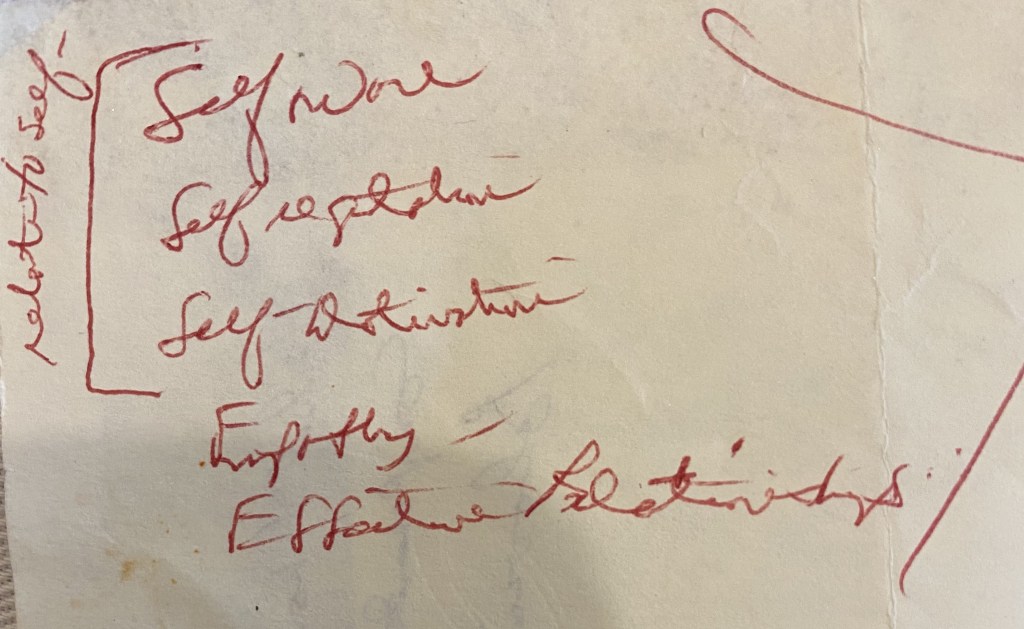 relate to self -
Self
Self regulation -
Self - Motivation -
Empathy -
Effective Relationships